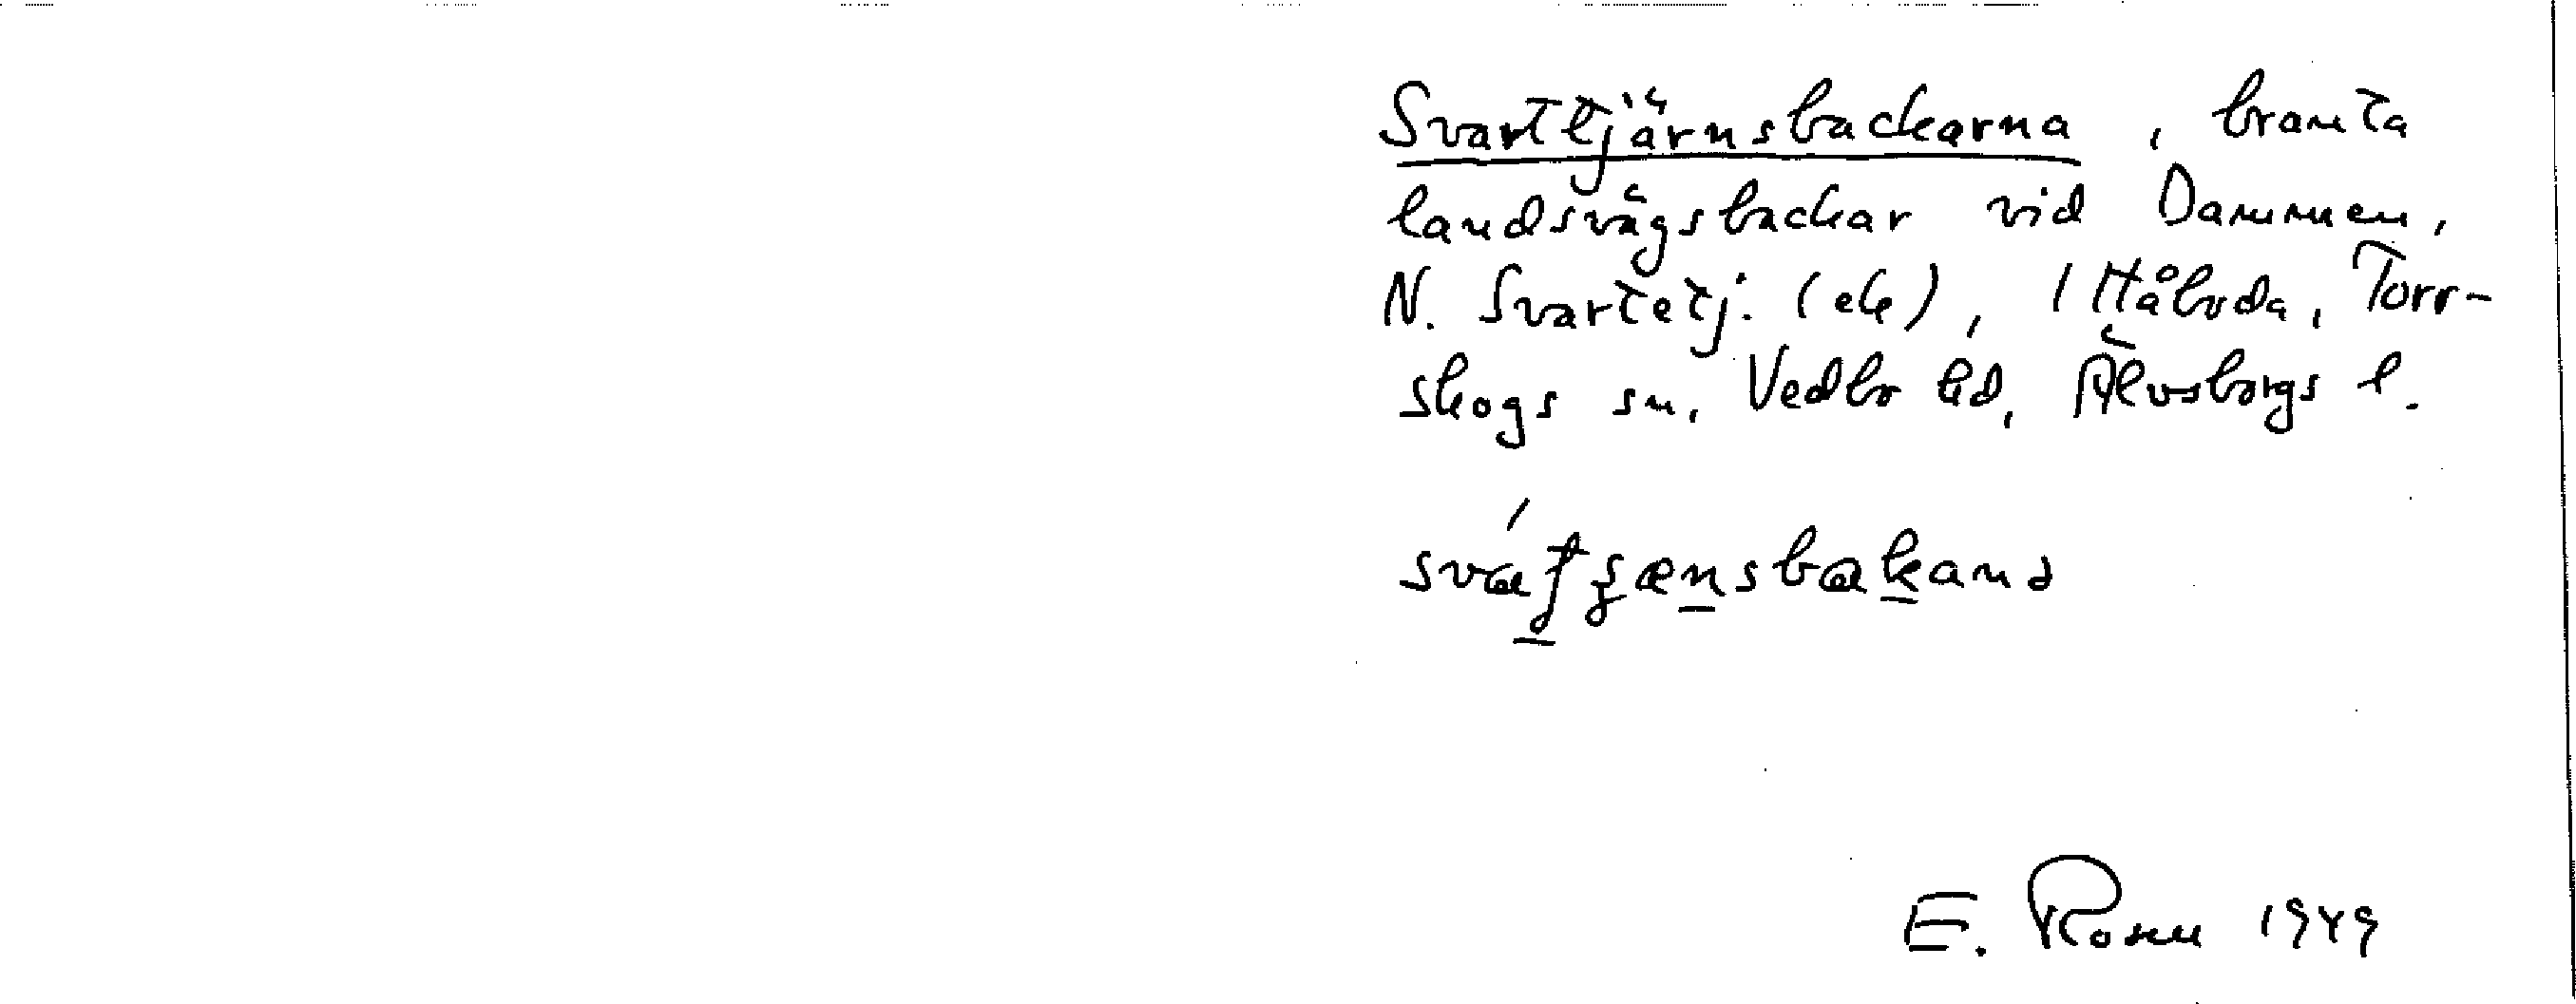 Svarttjärnsbackarna, branta
landsvägsbackar vid Dammen,
N. Svartetj. (ek), 1 Håbvda, Torr-
skogs sn, Vedbo hd, Älvsborgs l.
E. Rosen 1949